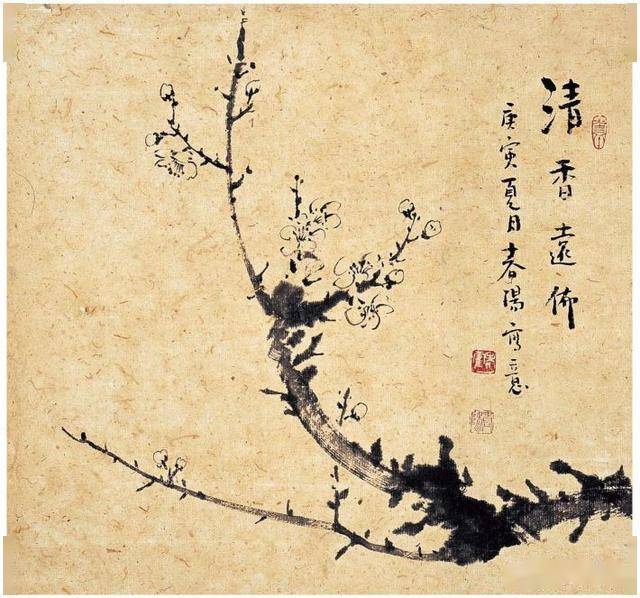 清香遠佈
庚寅夏日春陽寫意